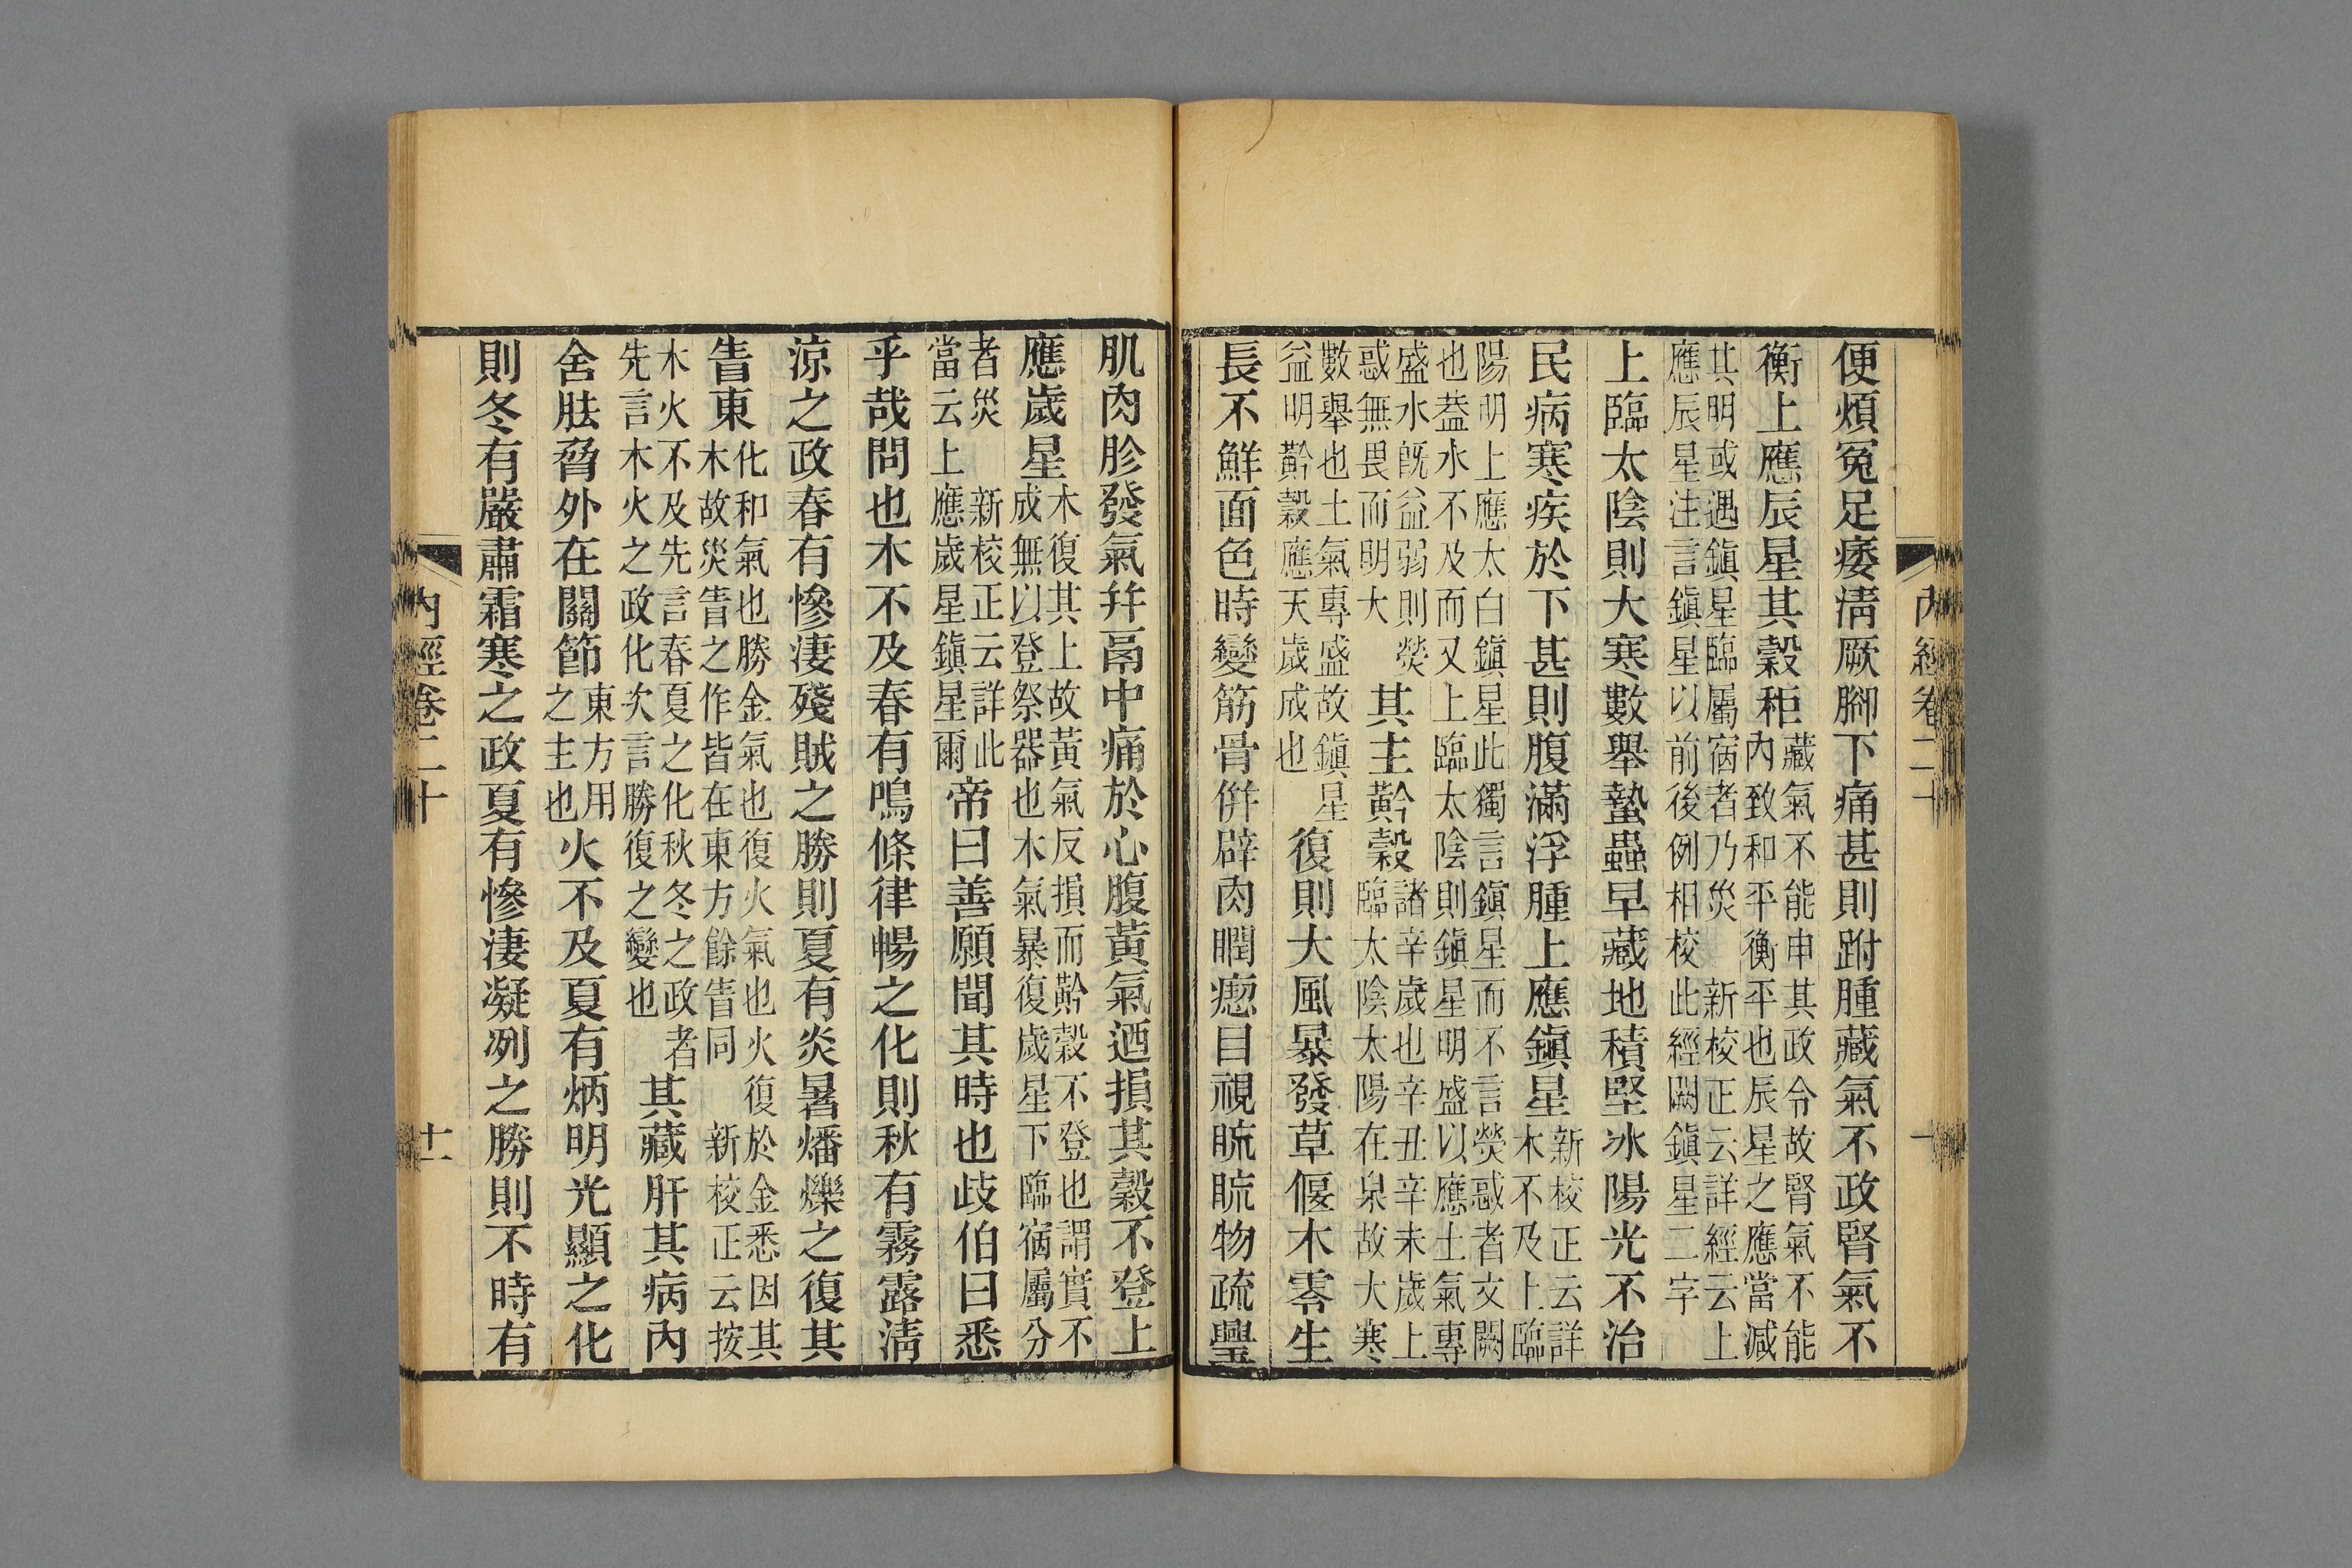 便煩冤足痿清厥腳下痛甚則跗腫藏氣不政腎氣不
衡上應辰星其穀秬藏氣不能申其政令故腎氣不能內致和平衡平也辰星之應當減
其明或遇鎮星臨屬宿者乃災 新校正云詳經云上
應辰星注言鎮星以前後例相校此經闕鎮星二字
上臨太陰則大寒數舉蟄蟲早藏地積堅冰陽光不治
民病寒疾於下甚則腹滿浮腫上應鎮星新校正云詳木不及上臨
陽明上應太白鎮星此獨言鎮星而不言熒惑者文闕
也蓋水不及而又上臨太陰則鎮星明盛以應土氣專
盛水既益弱則熒惑無畏而明大其主黅穀諸辛歲也辛丑辛未歲上臨太陰太陽在泉故大寒
數舉也土氣專盛故鎮星益明黅穀應天歲成也復則大風暴發草偃木零生
長不鮮面色時變筋骨併辟肉瞤瘛目視𥆨𥆨物疏璺
肌肉胗發氣并鬲中痛於心腹黃氣迺損其穀不登上
應歲星木復其上故黃氣反損而黅穀不登也謂實不成無以登祭器也木氣暴復歲星下臨宿屬分
者災 新校正云詳此當云上應歲星鎮星爾帝曰善願聞其時也歧伯曰悉
乎哉問也木不及春有鳴條律暢之化則秋有霧露清
涼之政春有慘淒殘賊之勝則夏有炎暑燔爍之復其
眚東化和氣也勝金氣也復火氣也火復於金悉因其木故災眚之作皆在東方餘眚同 新校正云按
木火不及先言春夏之化秋冬之政者先言木火之政化次言勝復之變也其藏肝其病內
舍胠脅外在關節東方用之主也火不及夏有炳明光顯之化
則冬有嚴肅霜寒之政夏有慘淒凝冽之勝則不時有
內經卷二十 十一